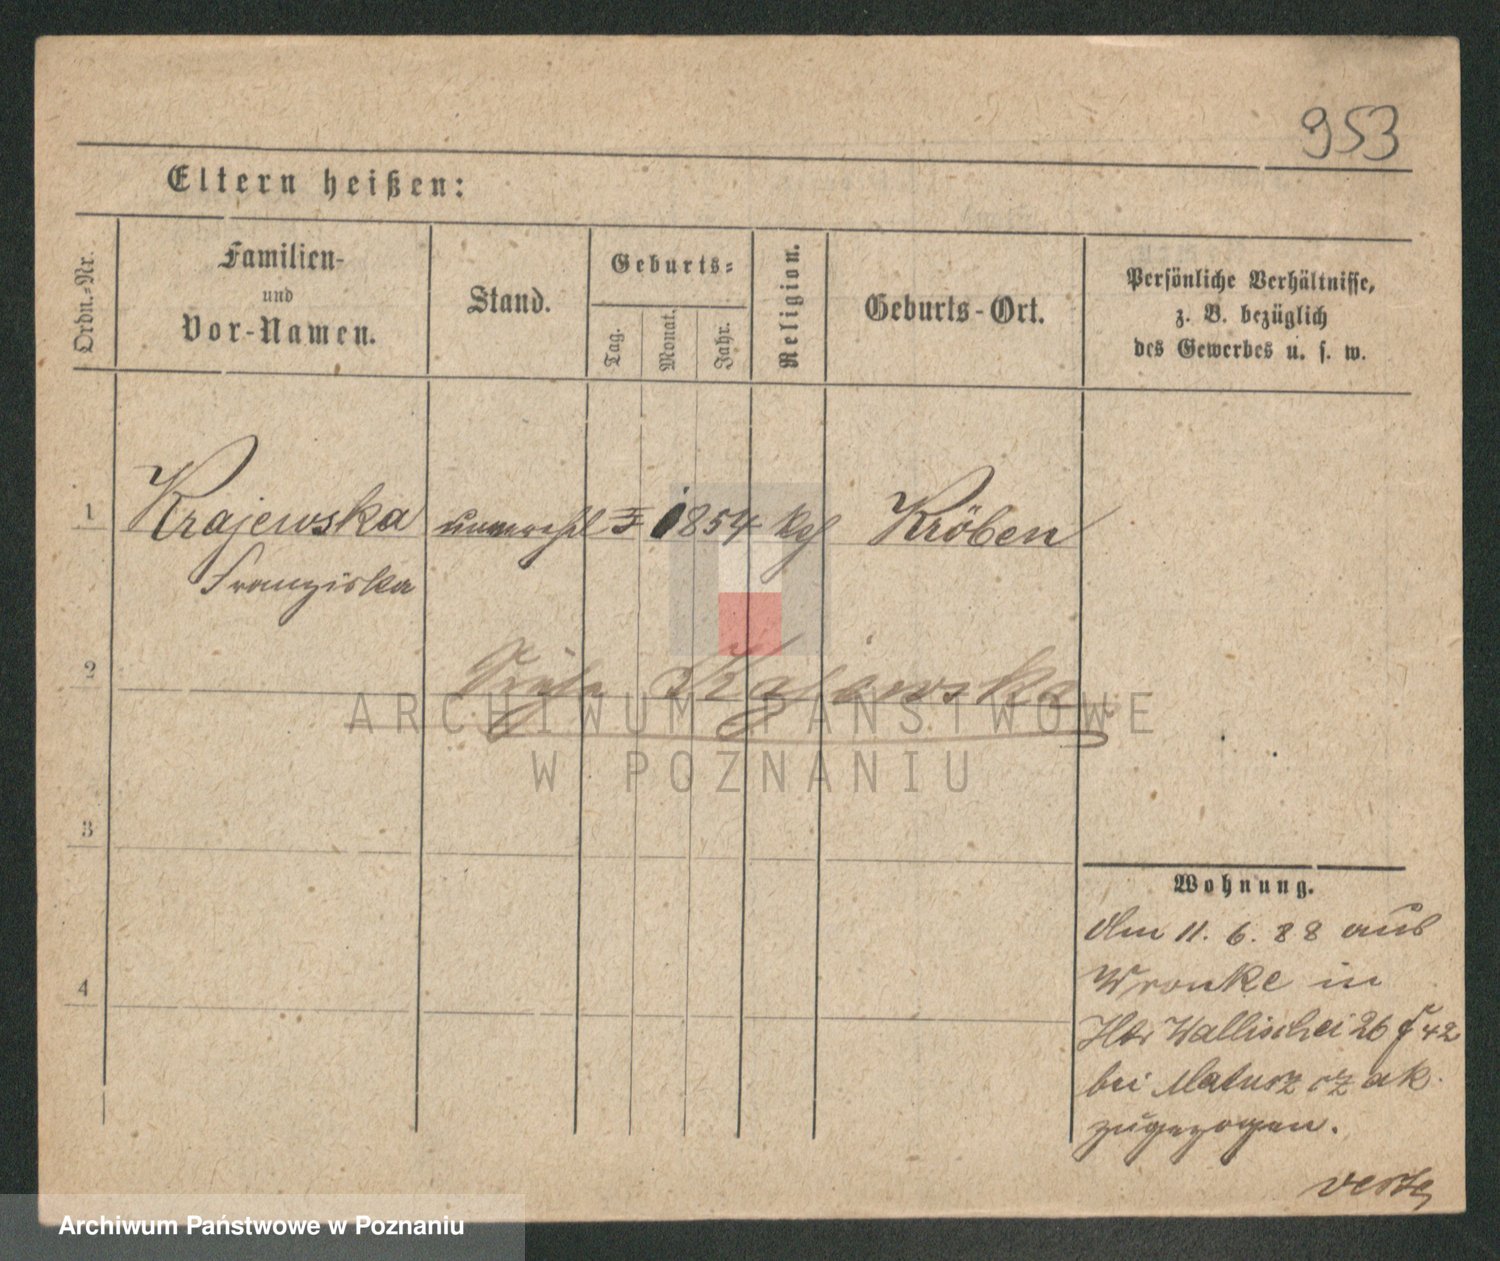 953
Eltern heißen:
Ordn.-Nr.
Familien-
und
Vor-Namen.
Stand.
Geburts-
Tag.
Monat.
Jahr.
Religion.
Geburts-Ort.
Persönliche Verhältnisse,
z. B. bezüglich
des Gewerbes u. s. w.
1 Krajewska unverehl 1854 Kröben
Franziska
2 Krajewska
3
4
ARCHIWUM PAŃSTWOWE
W POZNANIU
Wohnung.
11. 6. 88 aus
Wronke in
Wallischei 26 42
bei Matuszczak
zugezogen.
Archiwum Państwowe w Poznaniu